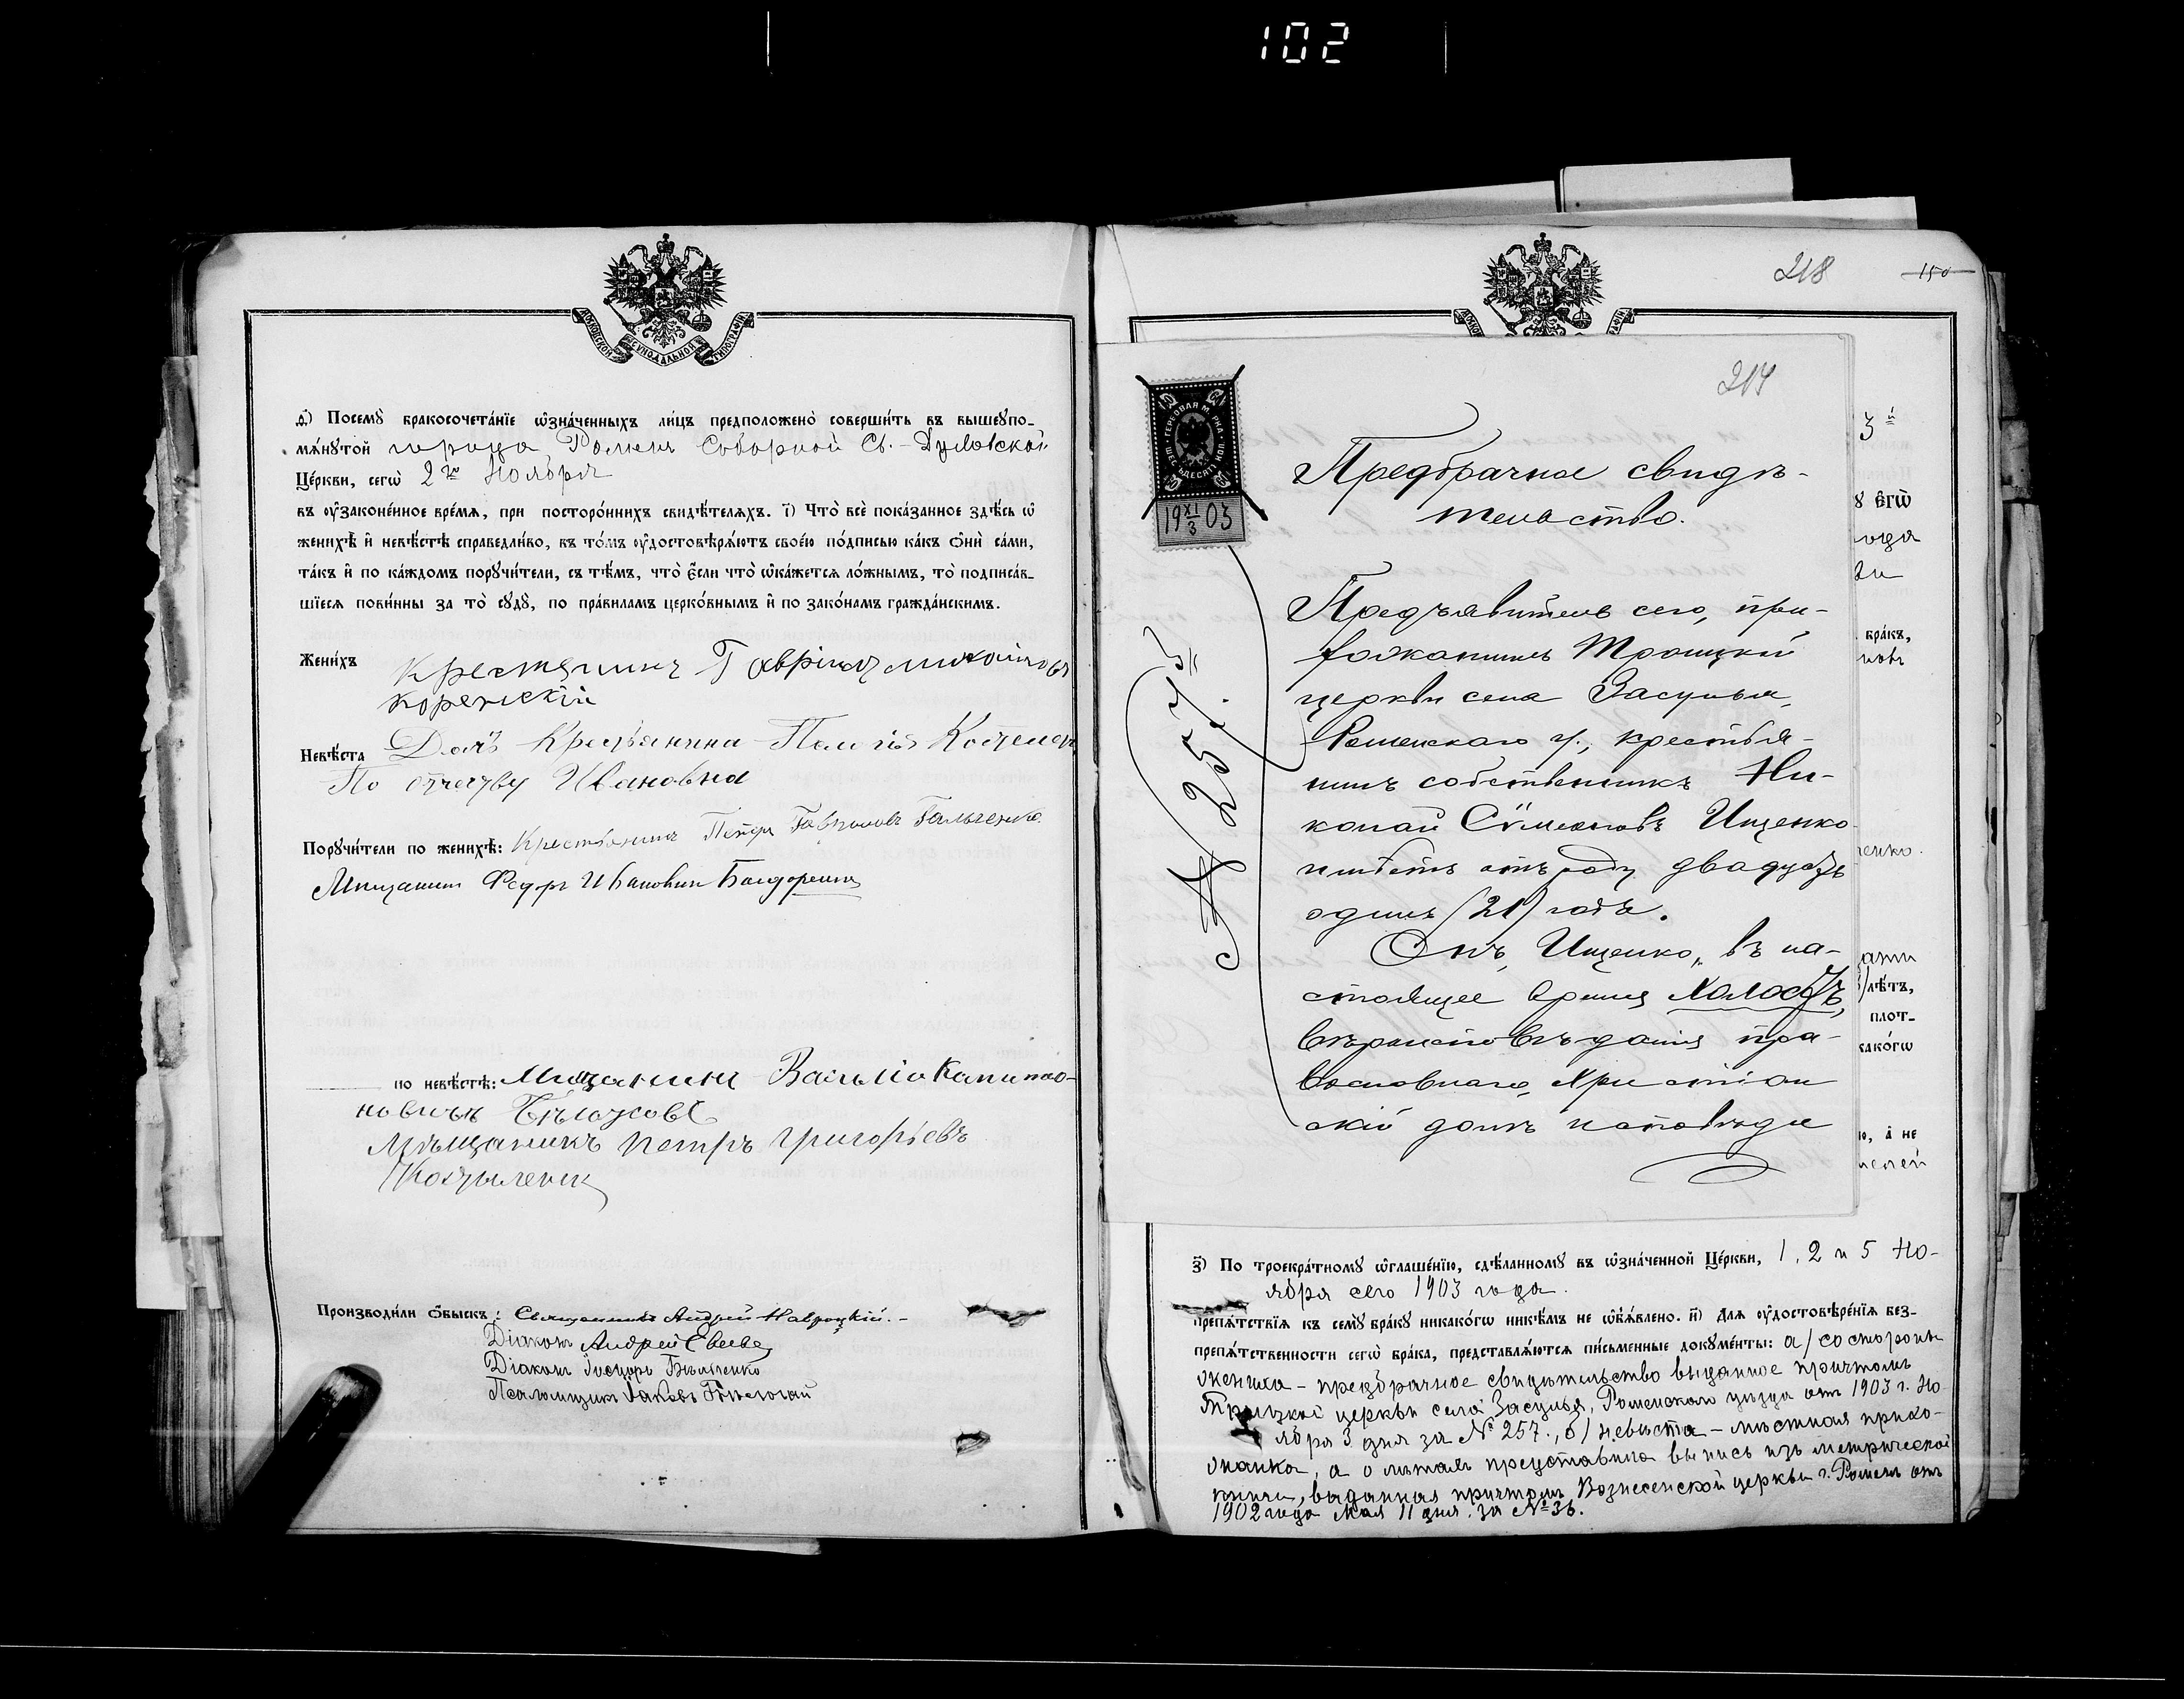 102
МОСКОВСКОЙ СѴНОДАЛЬНОЙ ТИПОГРАФІИ
д҃) Посемꙋ̀ бракосочета́нїе ѡ҆зна́ченныхъ ли́цъ предположено̀ соверши́ть въ вышеꙋпо-
мѧ́нꙋтой города Роменъ Соборной Св.-Духовской
Це́ркви, сегѡ̀ 2го Ноября
въ оу҆зако́ненное вре́мѧ, при посторо́ннихъ свидѣ́телѧхъ. і҃) Что̀ всѐ пока́занное здѣ́сь ѡ҆
женихѣ̀ и҆ невѣ́стѣ справедли́во, въ то́мъ оу҆достовѣрѧ́ютъ свое́ю по́дписью ка́къ ѻ҆нѝ са́ми,
та́къ и҆ по ка́ждомъ порꙋчи́тели, съ тѣ́мъ, что̀ є҆́сли что̀ ѡ҆ка́жетсѧ ло́жнымъ, то̀ подписа́в-
шїесѧ пови́нны за то̀ сꙋдꙋ̀, по пра́виламъ церко́внымъ и҆ по зако́намъ гражда́нскимъ.
Жени́хъ крестянинъ Гавріилъ михайловъ
коренскій
Невѣ́ста Дочь Крестьянина
По отчеству Ивановна
Порꙋчи́тели по женихѣ̀: Крестьянинъ Петръ Гавриловъ Гальченко
Мищанин Федръ Иванович
по невѣ́стѣ: Мищанинъ Василіо
новичъ
Мѣщанинъ Петръ Григорьевъ
Производи́ли ѻ҆́быскъ: Священникъ Андрей Навроцкій.-
Діаконъ Андрей
Діаконъ
Псаломщикъ Іаковъ
218
150
217
ГЕРБОВАЯ МАРКА ШЕСТЬДЕСЯТЪ КОП.
19 XI/3 03
№ 257.
Предбрачное свидѣ-
тельство.
Предъявитель сего, при-
хожанинъ Троицкой
церкви села Засулья,
Роменскаго у., крестья-
нинъ собственникъ Ни-
колай Сѵмеоновъ Ищенко
имѣетъ отъ роду двадцать
одинъ (21) годъ.
Онъ, Ищенко, въ на-
стоящее время холостъ,
вѣроисповѣданія пра-
вославнаго, христіан
скій долгъ исповѣди
3й
ꙋ є҆гѡ̀
ода
бра́къ,
новъ
ченко.
лѣ́тъ,
плот-
како́гѡ
ю, а҆ не
з҃) По троекра́тномꙋ ѡ҆глаше́нїю, сдѣ́ланномꙋ въ ѡ҆зна́ченной Це́ркви, 1, 2 и 5 Но-
ября сего 1903 года.
препѧ́тствїѧ къ семꙋ̀ бра́кꙋ никако́гѡ никѣ́мъ не ѡ҆б̾ѧ́влено. и҃) Длѧ оу҆достовѣре́нїѧ без-
препѧ́тственности сегѡ̀ бра́ка, представлѧ́ютсѧ пи́сьменные докꙋме́нты: а) со стороны
жениха - предбрачное свидѣтельство выданное причтомъ
Троицкой церкви села Засулья, Роменскаго уѣзда отъ 1903 г. Но-
ября 3 дня за № 257., б) невѣста - мѣстная прихо-
жанка, а о лѣтахъ представила выпись изъ метрической
книги, выданная причтомъ Вознесенской церкви г. Роменъ отъ
1902 года Мая 11 дня за № 36.